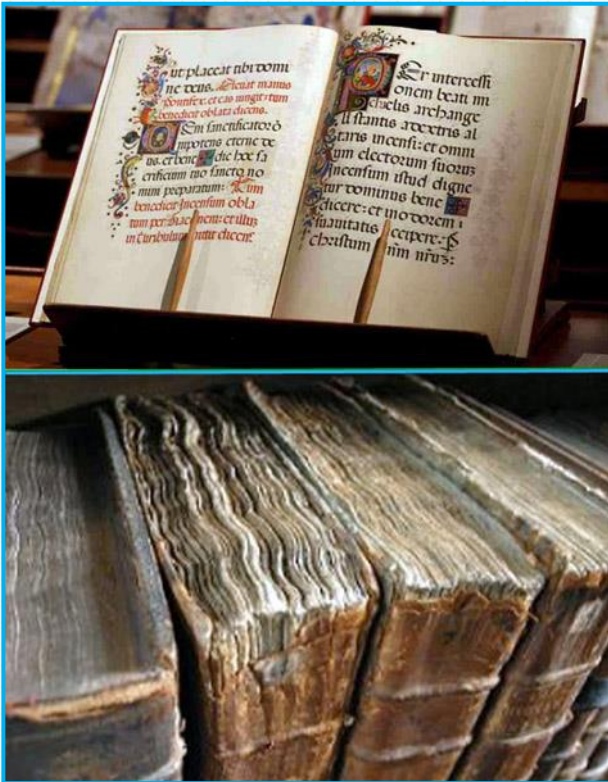 ut placeat tibi domi
ne deus. Elevat manus
pontifex. et eas iungit: tum
benedicit oblata dicens.
Em sanctificator o
mnipotens eterne de
us. et bene dic hoc sa
crificium tuo sancto no
mini preparatum: Tum
benedicit Incensum obla
tum per et illud
in turibulum dicens.
Er intercessi
onem beati mi
chaelis archange
li stantis a dextris al
taris incensi: et omni
um electorum suorum
incensum istud digne
tur dominus bene
dicere: et in odorem
suavitatis accipere: P
christum nrm: